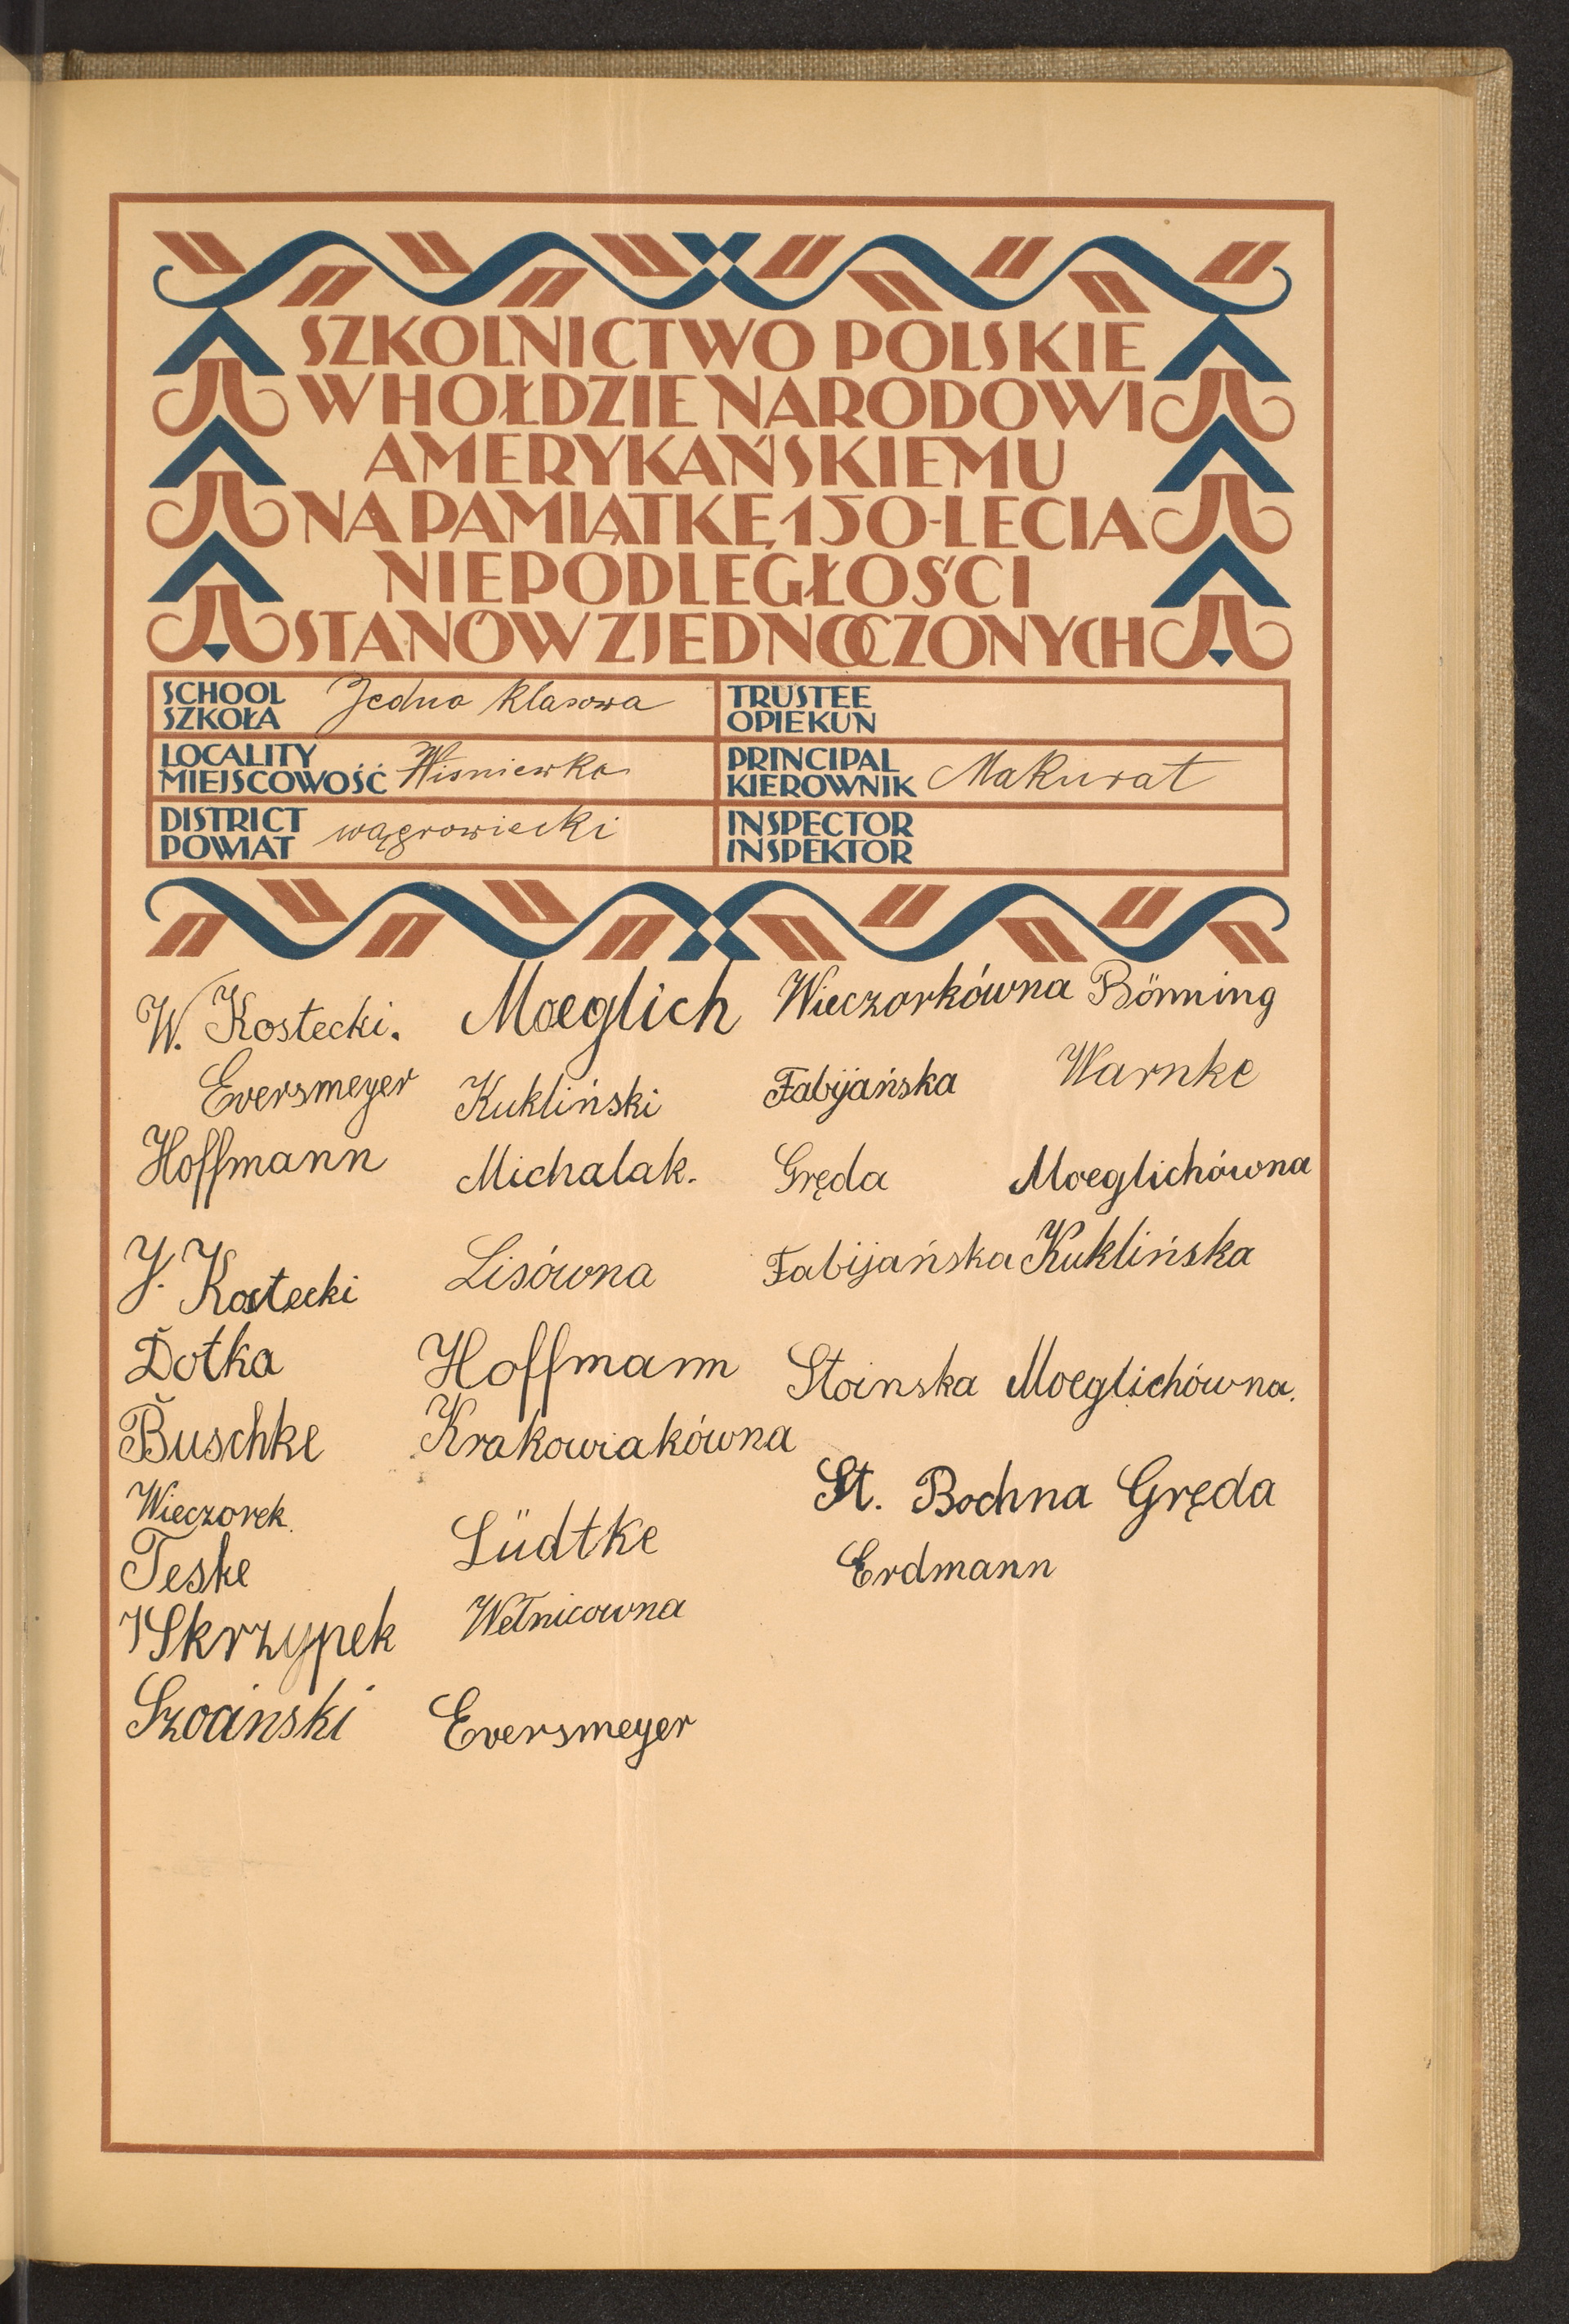 SZKOLNICTWO POLSKIE
W HOŁDZIE NARODOWI
AMERYKAŃSKIEMU
NA PAMIĄTKĘ 150-LECIA
NIEPODLEGŁOŚCI
STANÓW ZJEDNOCZONYCH
SCHOOL
SZKOŁA Jedno klasowa
TRUSTEE
OPIEKUN
LOCALITY
MIEJSCOWOŚĆ Wisniewko
PRINCIPAL
KIEROWNIK Makurat
DISTRICT
POWIAT wągrowiecki
INSPECTOR
INSPEKTOR
W. Kostecki. Moeglich Wieczorkówna Bönning
Eversmeyer Kukliński Fabijańska Warnke
Hoffmann Michalak. Gręda Moeglichówna
J. Kostecki Lisówna Fabijańska Kuklińska
Dotka Hoffmann Stoinska Moeglichówna.
Buschke Krakowiakówna
St. Bochna Gręda
Wieczorek. Lüdtke
Teske Erdmann
Skrzypek Wełnicowna
Eversmeyer